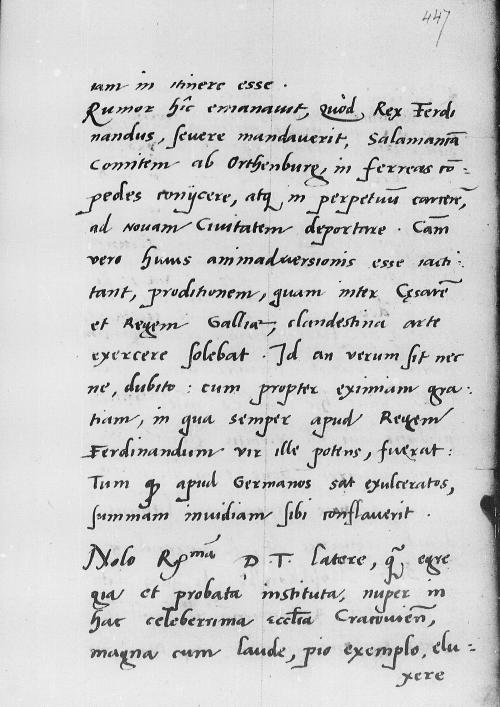 447
iam in itinere esse .
Rumor hîc emanauit, Quòd Rex Ferdi
nandus, seuere mandauerit, Salamantā
Comitem ab Orthenburg, in ferreas cō=
pedes conijcere, atq in perpetuū carcerē,
ad Nouam Ciuitatem deportare . Cām
vero huius animaduersionis esse iacti:
tant, proditionem, quam inter Cęsarē
et Regem Galliæ, clandestina arte
exercere solebat . Id an verum sit nec
ne, dubito : cum propter eximiam gra:
tiam, in qua semper apud Regem
Ferdinandum vir ille potens, fuerat :
Tum q apud Germanos sat exulceratos,
summam inuidiam sibi conflauerit .
Nolo Rmam D. T. latere, q̄ egre
gia et probata instituta, nuper in
hac celeberrima Ecclīa Cracouieñ,
magna cum laude, pio exemplo, elu=
xere